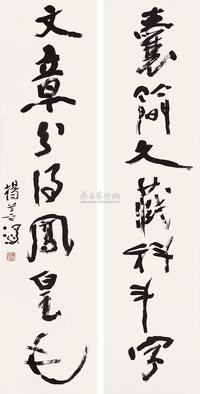 囊簡久藏科斗字
文章分得鳳皇毛
楊善深